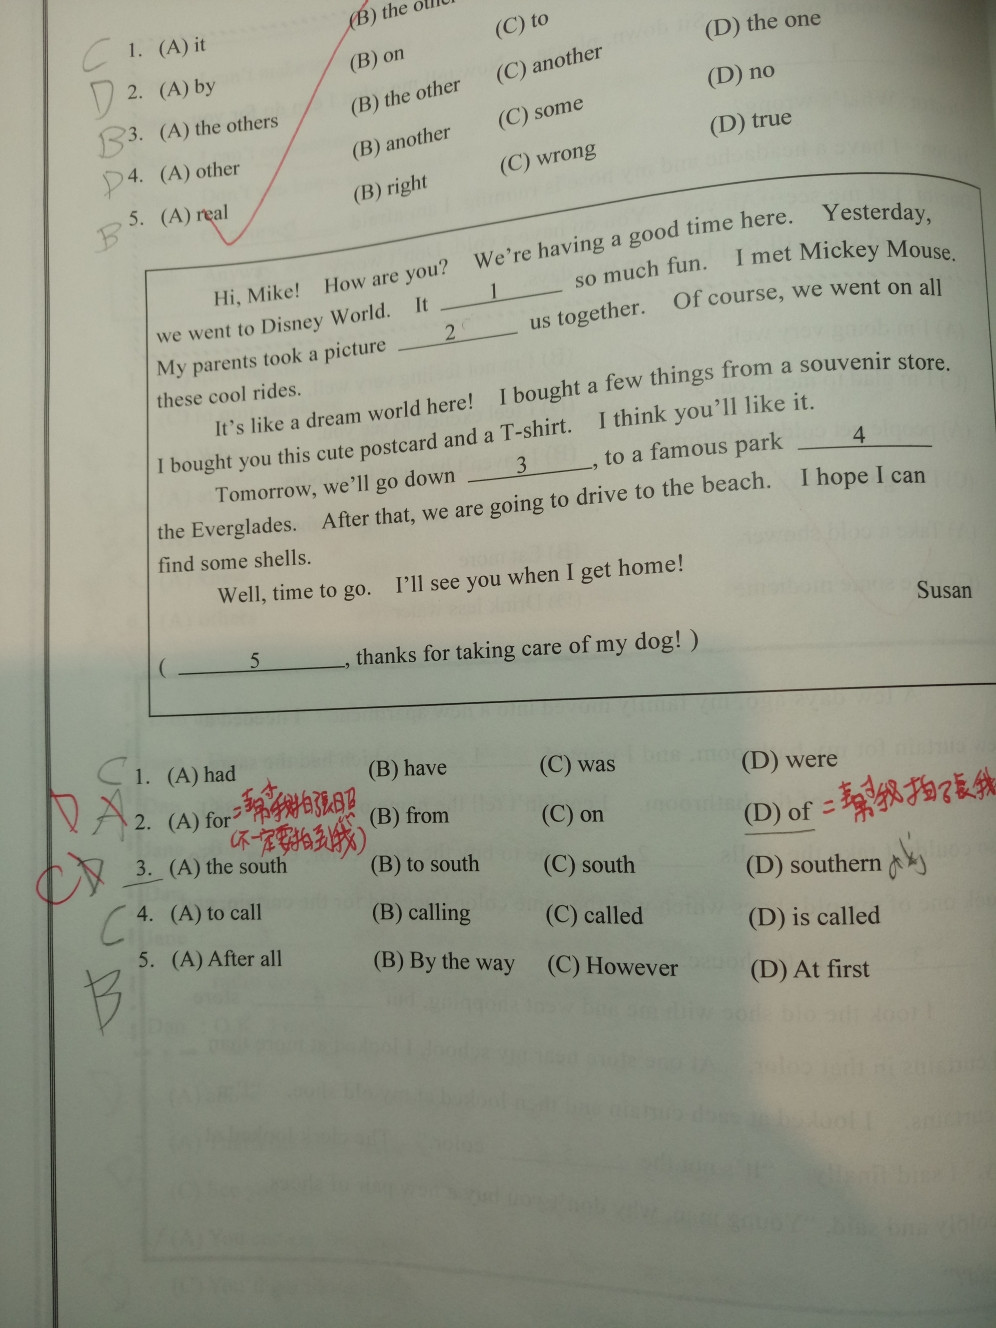 C 1. (A) it (B) the (C) to (D) the one
D 2. (A) by (B) on (C) another (D) no
B 3. (A) the others (B) the other (C) some (D) true
D 4. (A) other (B) another (C) wrong
B 5. (A) real (B) right
Hi, Mike! How are you? We're having a good time here. Yesterday,
we went to Disney World. It 1 so much fun. I met Mickey Mouse.
My parents took a picture 2 us together. Of course, we went on all
these cool rides.
It's like a dream world here! I bought a few things from a souvenir store.
I bought you this cute postcard and a T-shirt. I think you'll like it.
Tomorrow, we'll go down 3, to a famous park 4
the Everglades. After that, we are going to drive to the beach. I hope I can
find some shells.
Well, time to go. I'll see you when I get home!
Susan
( 5, thanks for taking care of my dog! )
C 1. (A) had (B) have (C) was (D) were
D A 2. (A) for =幫我拍張照 (不一定要拍到我) (B) from (C) on (D) of =幫我拍了張我
C D 3. (A) the south (B) to south (C) south (D) southern 的
C 4. (A) to call (B) calling (C) called (D) is called
B 5. (A) After all (B) By the way (C) However (D) At first